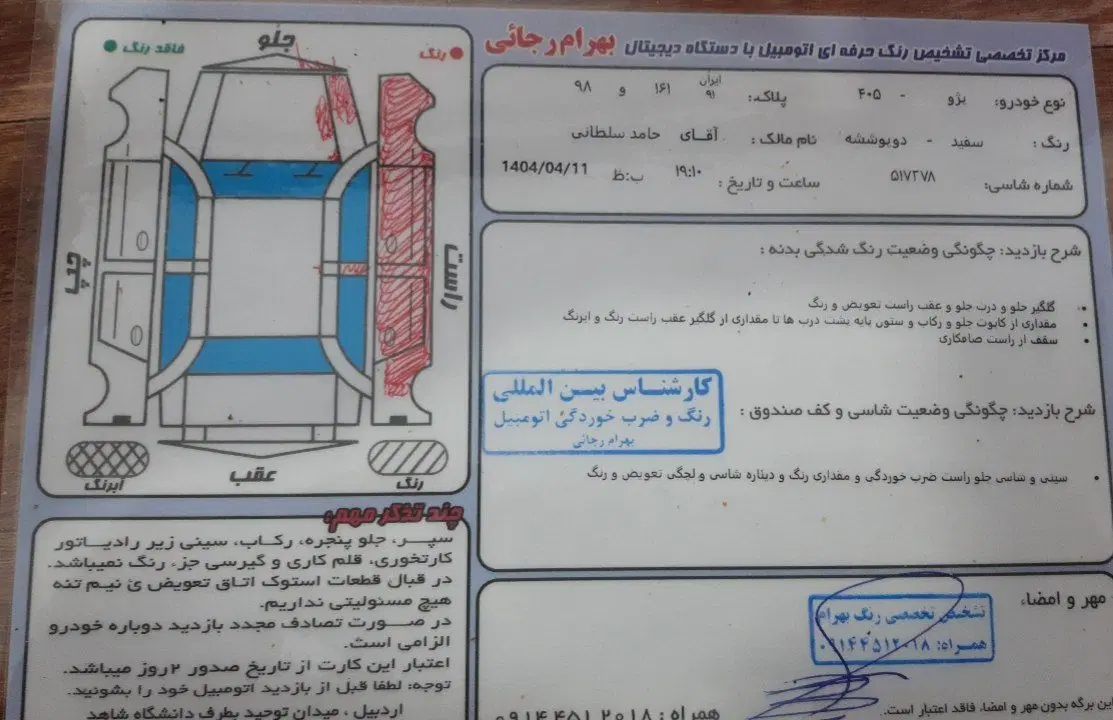 مرکز تخصصی تشخیص رنگ حرفه ای اتومبیل با دستگاه دیجیتال بهرام رجائی
نوع خودرو: پژو - ۴۰۵ پلاک: ایران ۹۱ ۱۶۱ و ۹۸
رنگ: سفید - دوپوششه نام مالک: آقای حامد سلطانی
شماره شاسی: ۵۱۷۲۷۸ ساعت و تاریخ: ۱۹:۱۰ ب:ظ 1404/04/11
شرح بازدید: چگونگی وضعیت رنگ شدگی بدنه:
گلگیر جلو و درب جلو و عقب راست تعویض و رنگ
مقداری از کاپوت جلو و رکاب و ستون پایه پشت درب ها تا مقداری از گلگیر عقب راست رنگ و ابرنگ
سقف از راست صافکاری
شرح بازدید: چگونگی وضعیت شاسی و کف صندوق:
کارشناس بین المللی
رنگ و ضرب خوردگی اتومبیل
بهرام رجائی
سینی و شاسی جلو راست ضرب خوردگی و مقداری رنگ و دیتاره شاسی و لچگی تعویض و رنگ
مهر و امضاء
تشخیص تخصصی رنگ بهرام
همراه: ۰۹۱۴۴۵۱۲۰۱۸
همراه: ۰۹۱۴۴۵۱۲۰۱۸
این برگه بدون مهر و امضاء فاقد اعتبار است.
رنگ
جلو
فاقد رنگ
راست
چپ
رنگ
عقب
آبرنگ
چند تذکر مهم:
سپر، جلو پنجره، رکاب، سینی زیر رادیاتور
کارتخوری، قلم کاری و گیرسی جزء رنگ نمیباشد.
در قبال قطعات استوک اتاق تعویض ی نیم تنه
هیچ مسئولیتی نداریم.
در صورت تصادف مجدد بازدید دوباره خودرو
الزامی است.
اعتبار این کارت از تاریخ صدور ۲ روز میباشد.
توجه: لطفا قبل از بازدید اتومبیل خود را بشوئید.
اردبیل، میدان توحید بطرف دانشگاه شاهد